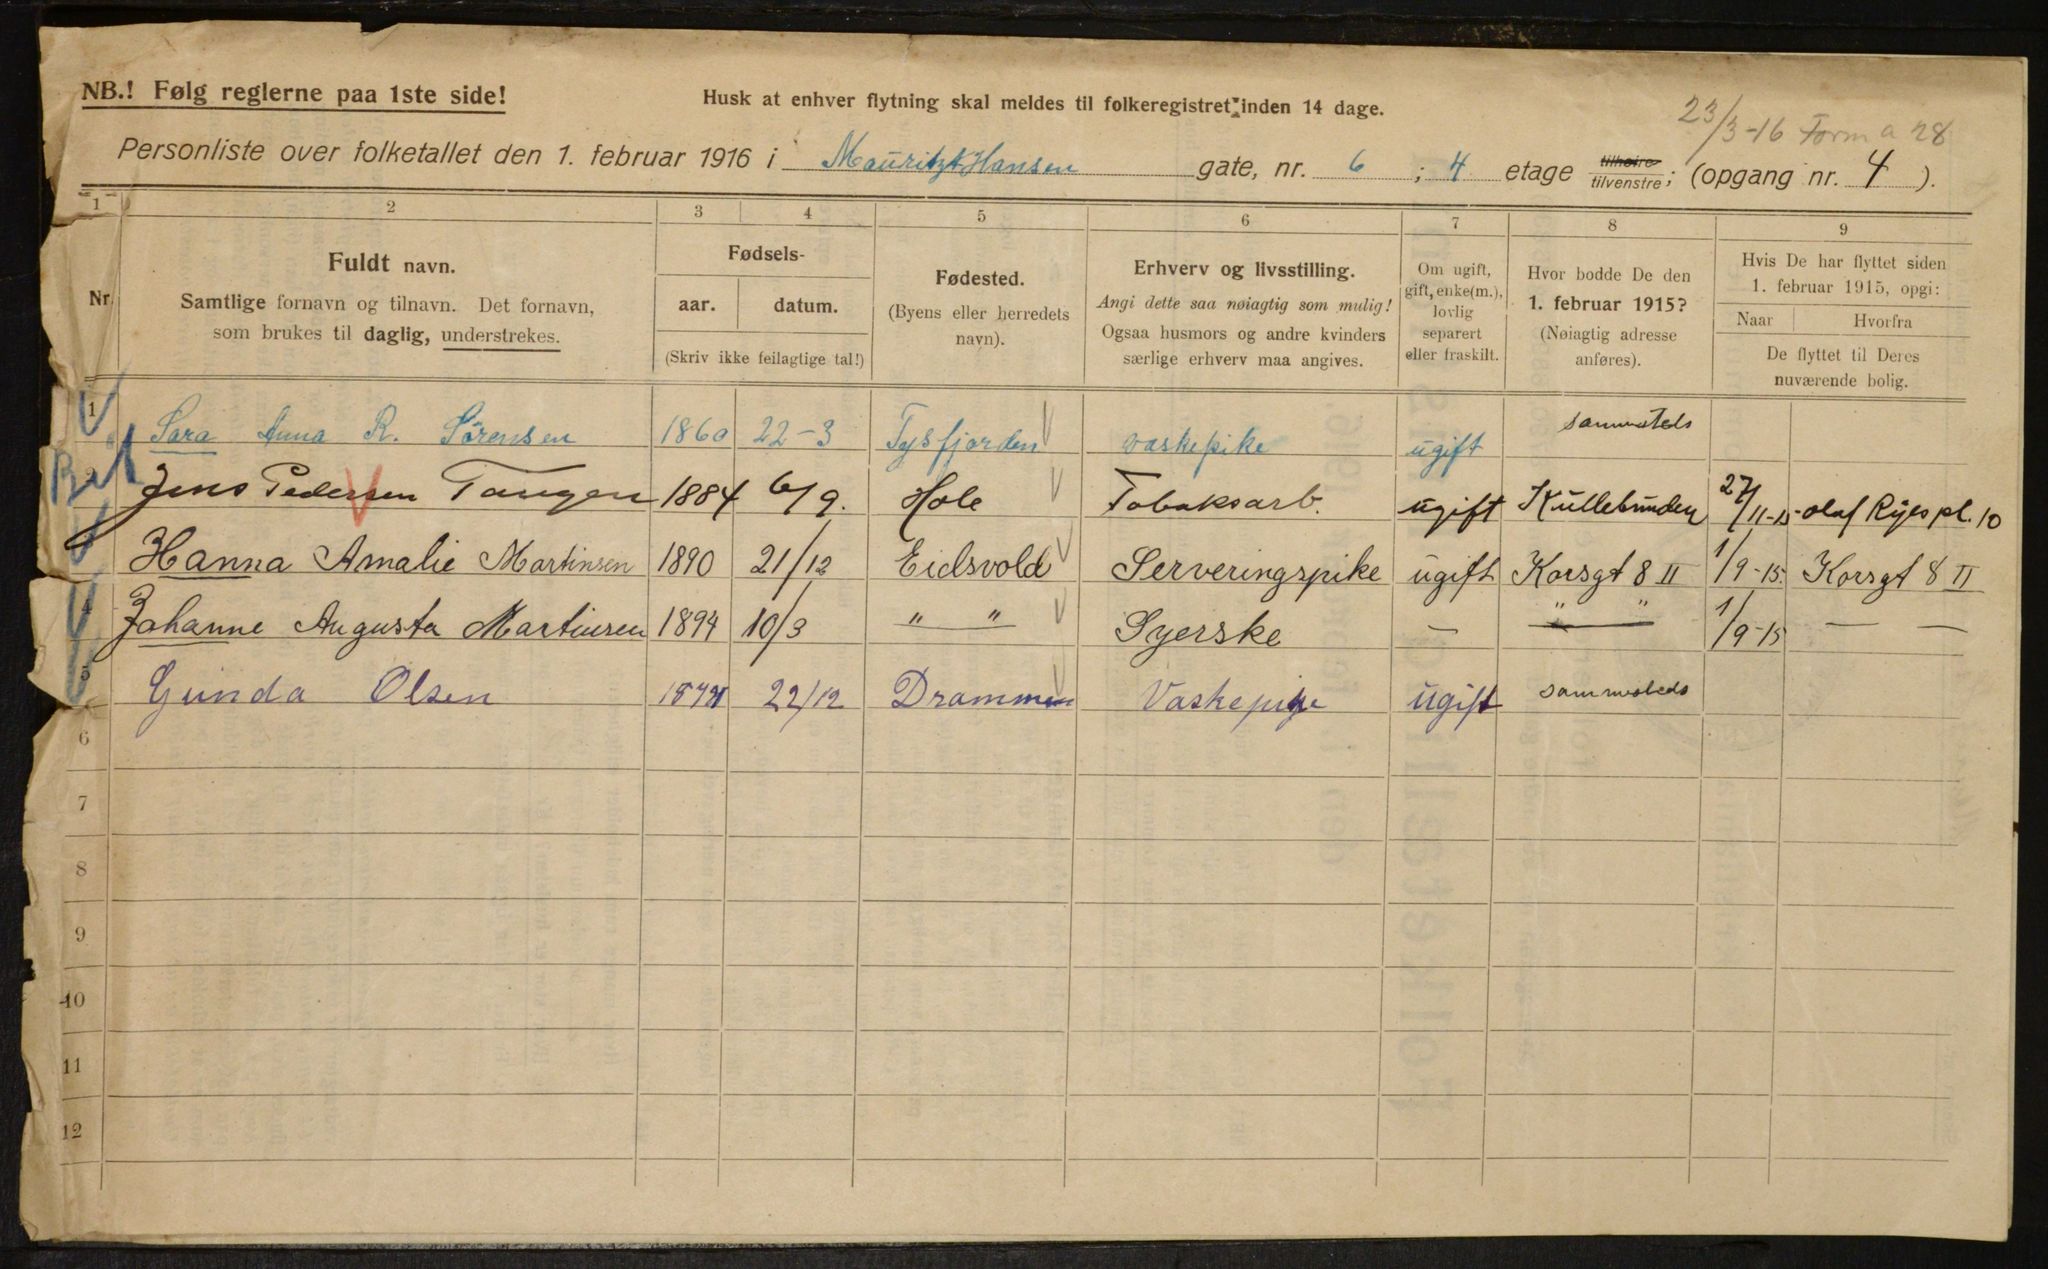 NB.! Følg reglerne paa 1ste side!
Husk at enhver flytning skal meldes til folkeregistret inden 14 dage.
23/3-16 Form a 28
Personliste over folketallet den 1. februar 1916 i Mauritz Hansen gate, nr. 6 ; 4 etage tilhøire/tilvenstre; (opgang nr. 4 ).
1 2 3 4 5 6 7 8 9
Nr.
Fuldt navn.
Samtlige fornavn og tilnavn. Det fornavn,
som brukes til daglig, understrekes.
Fødsels-
aar. datum.
(Skriv ikke feilagtige tal!)
Fødested.
(Byens eller herredets
navn).
Erhverv og livsstilling.
Angi dette saa nøiagtig som mulig!
Ogsaa husmors og andre kvinders
særlige erhverv maa angives.
Om ugift,
gift, enke(m.),
lovlig
separert
eller fraskilt.
Hvor bodde De den
1. februar 1915?
(Nøiagtig adresse
anføres).
Hvis De har flyttet siden
1. februar 1915, opgi:
Naar Hvorfra
De flyttet til Deres
nuværende bolig.
1 Sara Anna R. Sörensen 1860 22-3 Tysfjorden vaskepike ugift sammesteds
2 Jens Pedersen Tangen 1884 6/9. Hole Tobaksarb. ugift Kullebunden 27/11-15 Olaf Ryes pl. 10
Hanna Amalie Martinsen 1890 21/12 Eidsvold Serveringspike ugift Korsgt 8 II 1/9-15. Korsgt 8 II
4 Johanne Augusta Martinsen 1894 10/3 " " Syerske — " " 1/9-15 — —
5 Gunda Olsen 22/12 Drammen Vaskepige ugift sammesteds
6
7
8
9
10
11
12